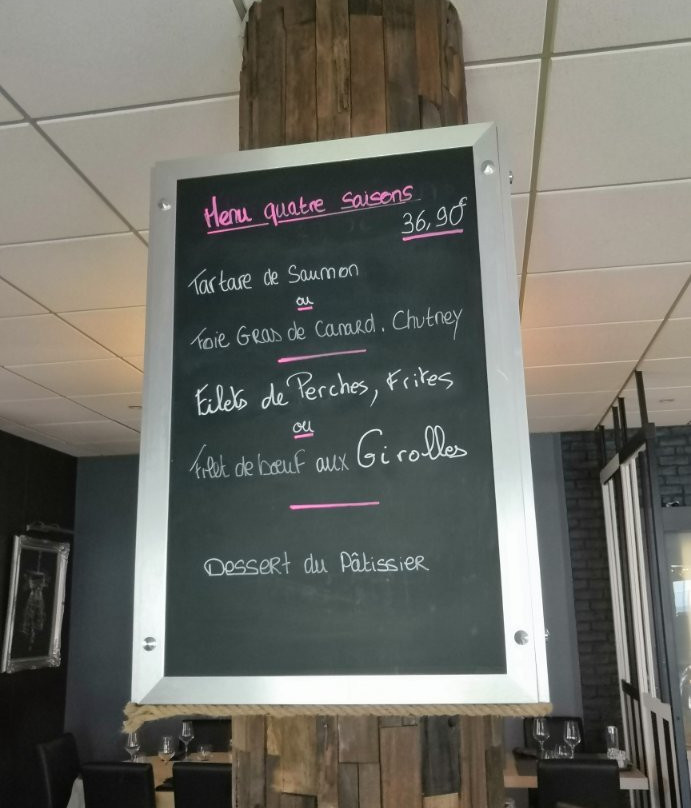 Menu quatre saisons
36,90€
Tartare de Saumon
ou
Foie Gras de Canard. Chutney
Filets de Perches, Frites
ou
Filet de bœuf aux Girolles
Dessert du Pâtissier